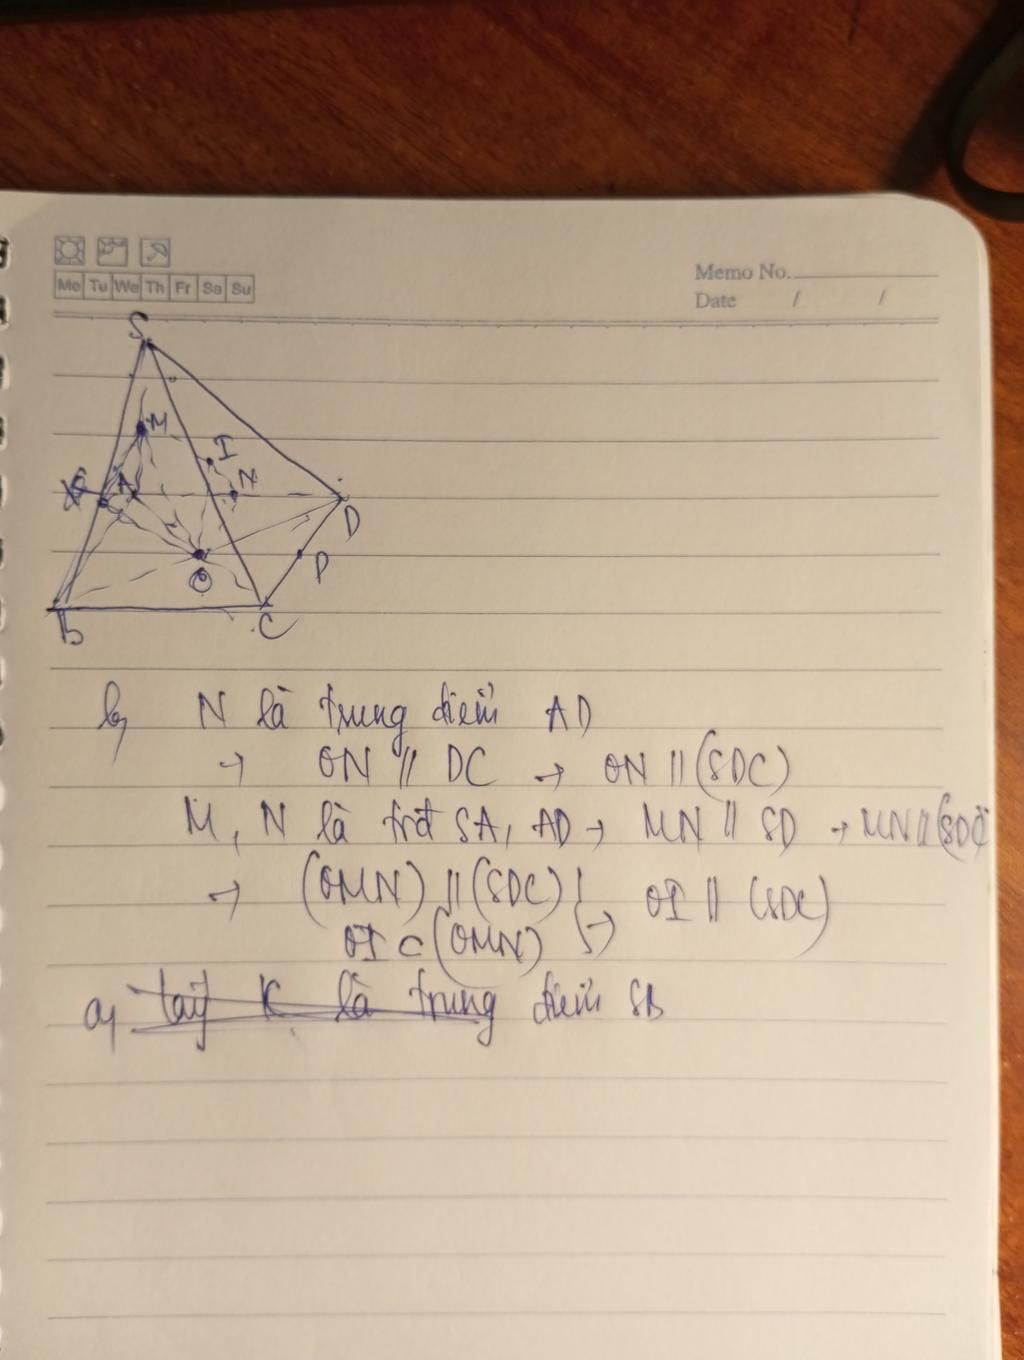 Mo Tu We Th Fr Sa Su
Memo No.
Date / /
S
M
I
A
N
D
O
P
B
C
b, N là trung điểm AD
→ ON // DC → ON // (SDC)
M, N là trđ SA, AD → MN // SD → MN // (SDC)
→ (OMN) // (SDC) } OI // (SDC)
OI ⊂ (OMN) →
a, Lấy K là trung điểm SB